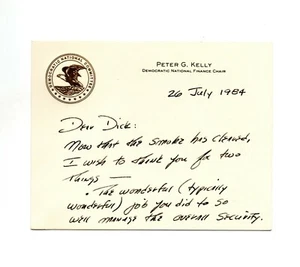 DEMOCRATIC NATIONAL COMMITTEE
PETER G. KELLY
DEMOCRATIC NATIONAL FINANCE CHAIR
26 July 1984
Dear Dick:
Now that the smoke has cleared,
I wish to thank you for two
things —
• The wonderful (typically
wonderful) job you did to so
well manage the overall security.